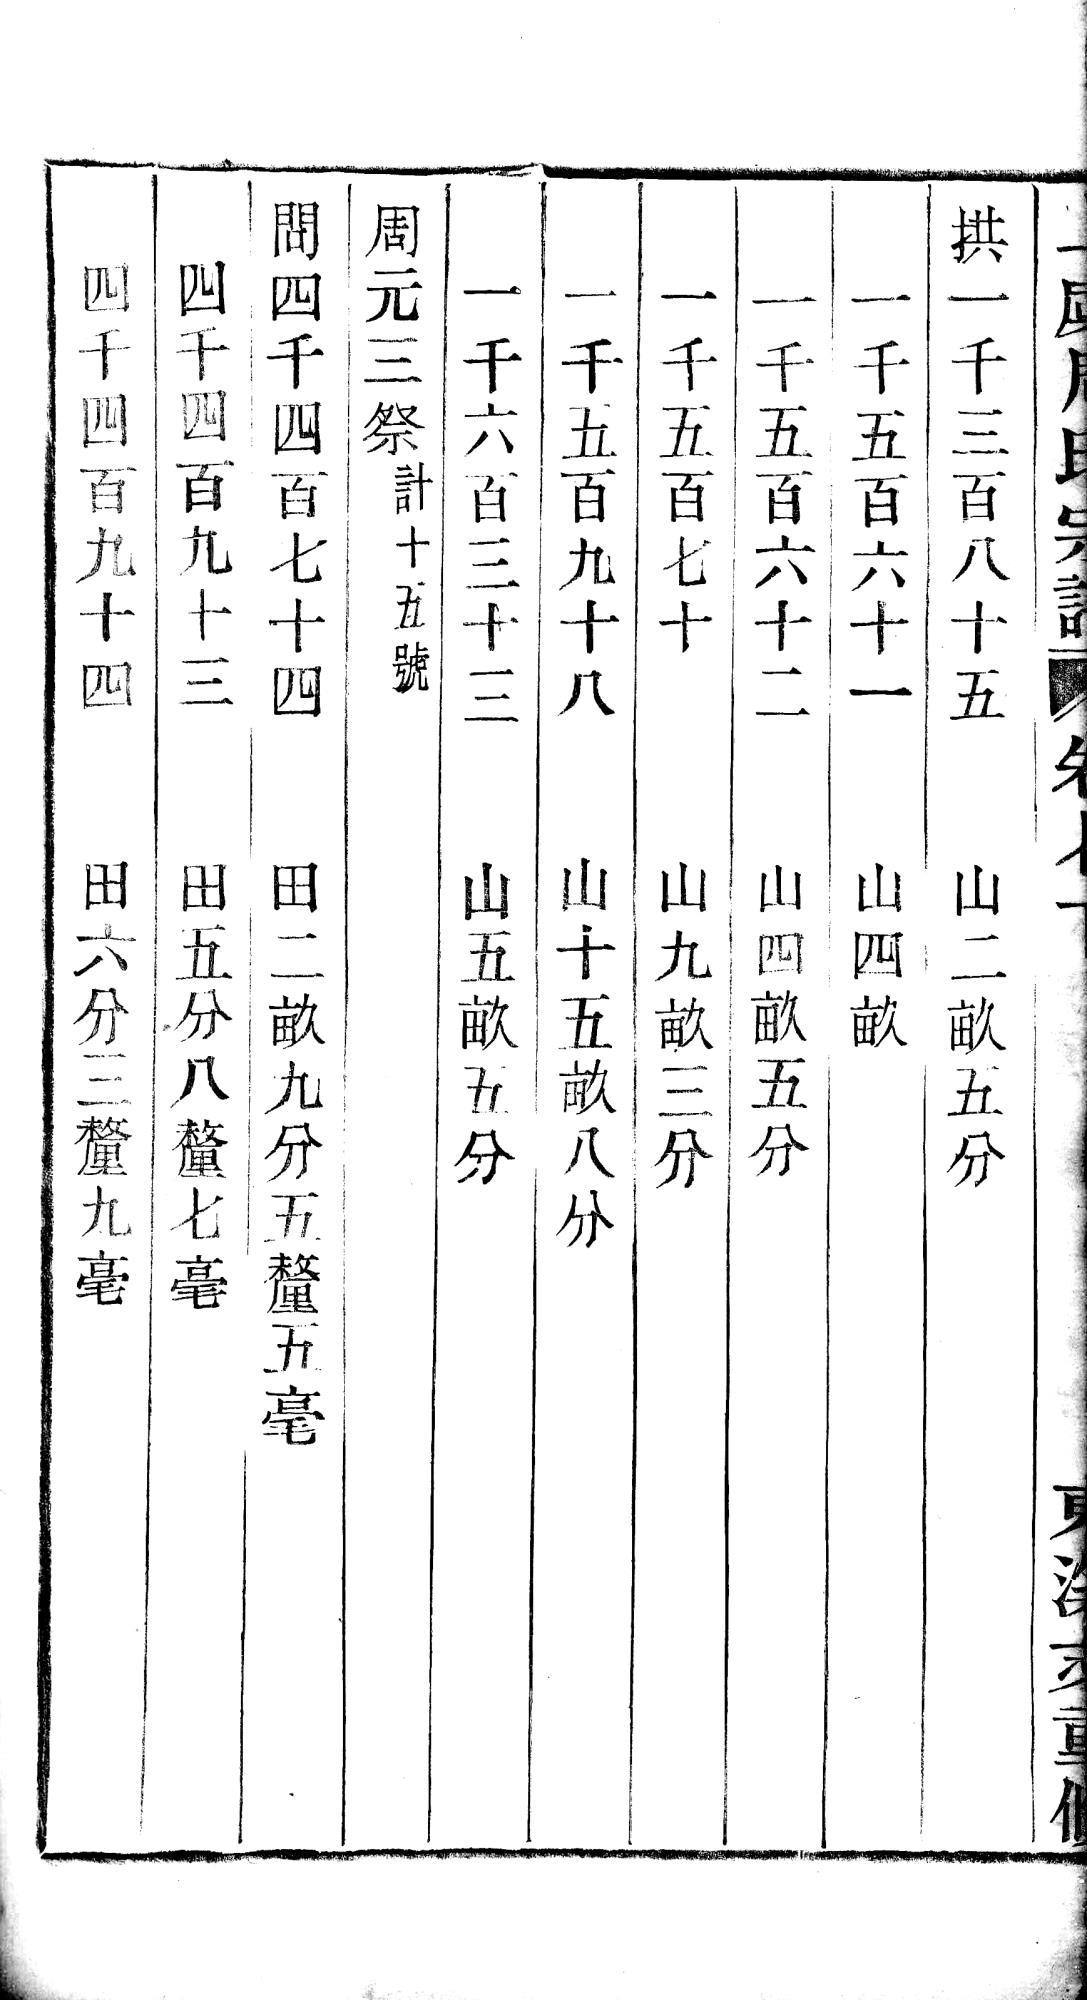 周氏宗譜 卷
重修
拱一千三百八十五 山二畝五分
一千五百六十一 山四畝
一千五百六十二 山四畝五分
一千五百七十 山九畝三分
一千五百九十八 山十五畝八分
一千六百三十三 山五畝五分
周元三祭計十五號
問四千四百七十四 田二畝九分五釐五毫
四千四百九十三 田五分八釐七毫
四千四百九十四 田六分三釐九毫